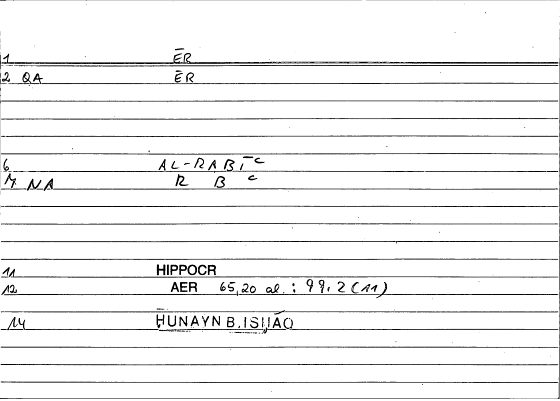 1 ĒR
2 QA ĒR
6 AL-RABĪᶜ
7. NA R B ᶜ
11 HIPPOCR
12 AER 65,20 al. : 99,2 (11)
14 ḤUNAYN B. ISḤĀQ